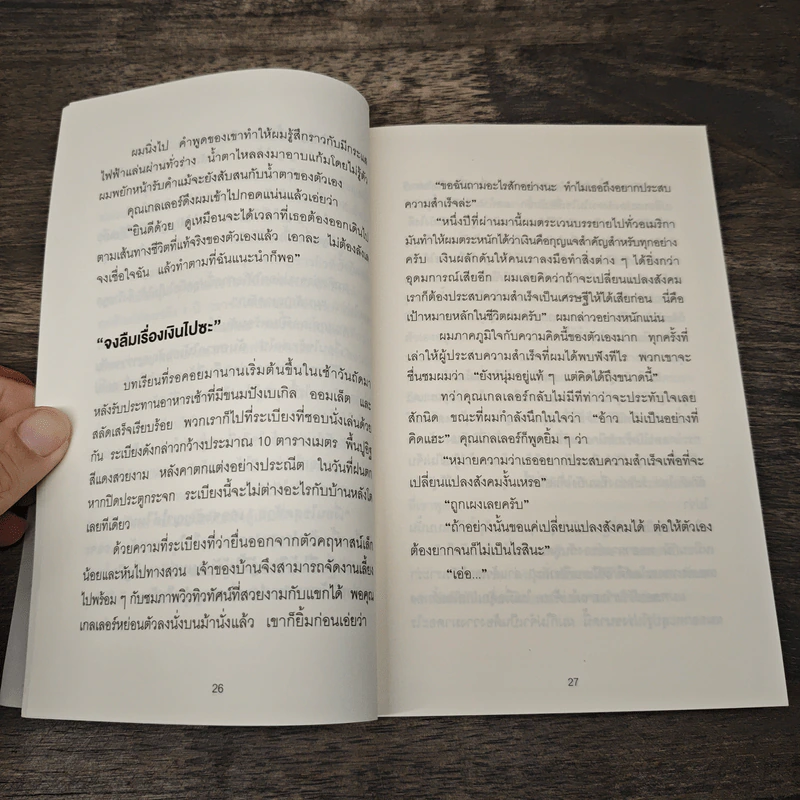 ผมนิ่งไป คำพูดของเขาทำให้ผมรู้สึกราวกับมีกระแส
ไฟฟ้าแล่นผ่านทั่วร่าง น้ำตาไหลลงมาอาบแก้มโดยไม่รู้ตัว
ผมพยักหน้ารับคำแม้จะยังสับสนกับน้ำตาของตัวเอง
คุณเกลเลอร์ดึงผมเข้าไปกอดแน่นแล้วเอ่ยว่า
“ยินดีด้วย ดูเหมือนจะได้เวลาที่เธอต้องออกเดินไป
ตามเส้นทางชีวิตที่แท้จริงของตัวเองแล้ว เอาละ ไม่ต้องลังเล
จงเชื่อใจฉัน แล้วทำตามที่ฉันแนะนำก็พอ”
“จงลืมเรื่องเงินไปซะ”
บทเรียนที่รอคอยมานานเริ่มต้นขึ้นในเช้าวันถัดมา
หลังรับประทานอาหารเช้าที่มีขนมปังเบเกิล ออมเล็ต และ
สลัดเสร็จเรียบร้อย พวกเราก็ไปที่ระเบียงที่ชอบนั่งเล่นด้วย
กัน ระเบียงดังกล่าวกว้างประมาณ 10 ตารางเมตร พื้นปูอิฐ
สีแดงสวยงาม หลังคาตกแต่งอย่างประณีต ในวันที่ฝนตก
หากปิดประตูกระจก ระเบียงนี้จะไม่ต่างอะไรกับบ้านหลังใด
เลยทีเดียว
ด้วยความที่ระเบียงที่ว่ายื่นออกจากตัวคฤหาสน์เล็ก
น้อยและหันไปทางสวน เจ้าของบ้านจึงสามารถจัดงานเลี้ยง
ไปพร้อม ๆ กับชมภาพวิวทิวทัศน์ที่สวยงามกับแขกได้ พอคุณ
เกลเลอร์หย่อนตัวลงนั่งบนม้านั่งแล้ว เขาก็ยิ้มก่อนเอ่ยว่า
26
“ขอฉันถามอะไรสักอย่างนะ ทำไมเธอถึงอยากประสบ
ความสำเร็จล่ะ”
“หนึ่งปีที่ผ่านมานี้ผมตระเวนบรรยายไปทั่วอเมริกา
มันทำให้ผมตระหนักได้ว่าเงินคือกุญแจสำคัญสำหรับทุกอย่าง
ครับ เงินผลักดันให้คนเราลงมือทำสิ่งต่าง ๆ ได้ยิ่งกว่า
อุดมการณ์เสียอีก ผมเลยคิดว่าถ้าจะเปลี่ยนแปลงสังคม
เราก็ต้องประสบความสำเร็จเป็นเศรษฐีให้ได้เสียก่อน นี่คือ
เป้าหมายหลักในชีวิตผมครับ” ผมกล่าวอย่างหนักแน่น
ผมภาคภูมิใจกับความคิดนี้ของตัวเองมาก ทุกครั้งที่
เล่าให้ผู้ประสบความสำเร็จที่ผมได้พบฟังทีไร พวกเขาจะ
ชื่นชมผมว่า “ยังหนุ่มอยู่แท้ ๆ แต่คิดได้ถึงขนาดนี้”
ทว่าคุณเกลเลอร์กลับไม่มีทีท่าว่าจะประทับใจเลย
สักนิด ขณะที่ผมกำลังนึกในใจว่า “อ้าว ไม่เป็นอย่างที่
คิดแฮะ” คุณเกลเลอร์ก็พูดยิ้ม ๆ ว่า
“หมายความว่าเธออยากประสบความสำเร็จเพื่อที่จะ
เปลี่ยนแปลงสังคมงั้นเหรอ”
“ถูกเผงเลยครับ”
“ถ้าอย่างนั้นขอแค่เปลี่ยนแปลงสังคมได้ ต่อให้ตัวเอง
ต้องยากจนก็ไม่เป็นไรสินะ”
“เอ่อ...”
27